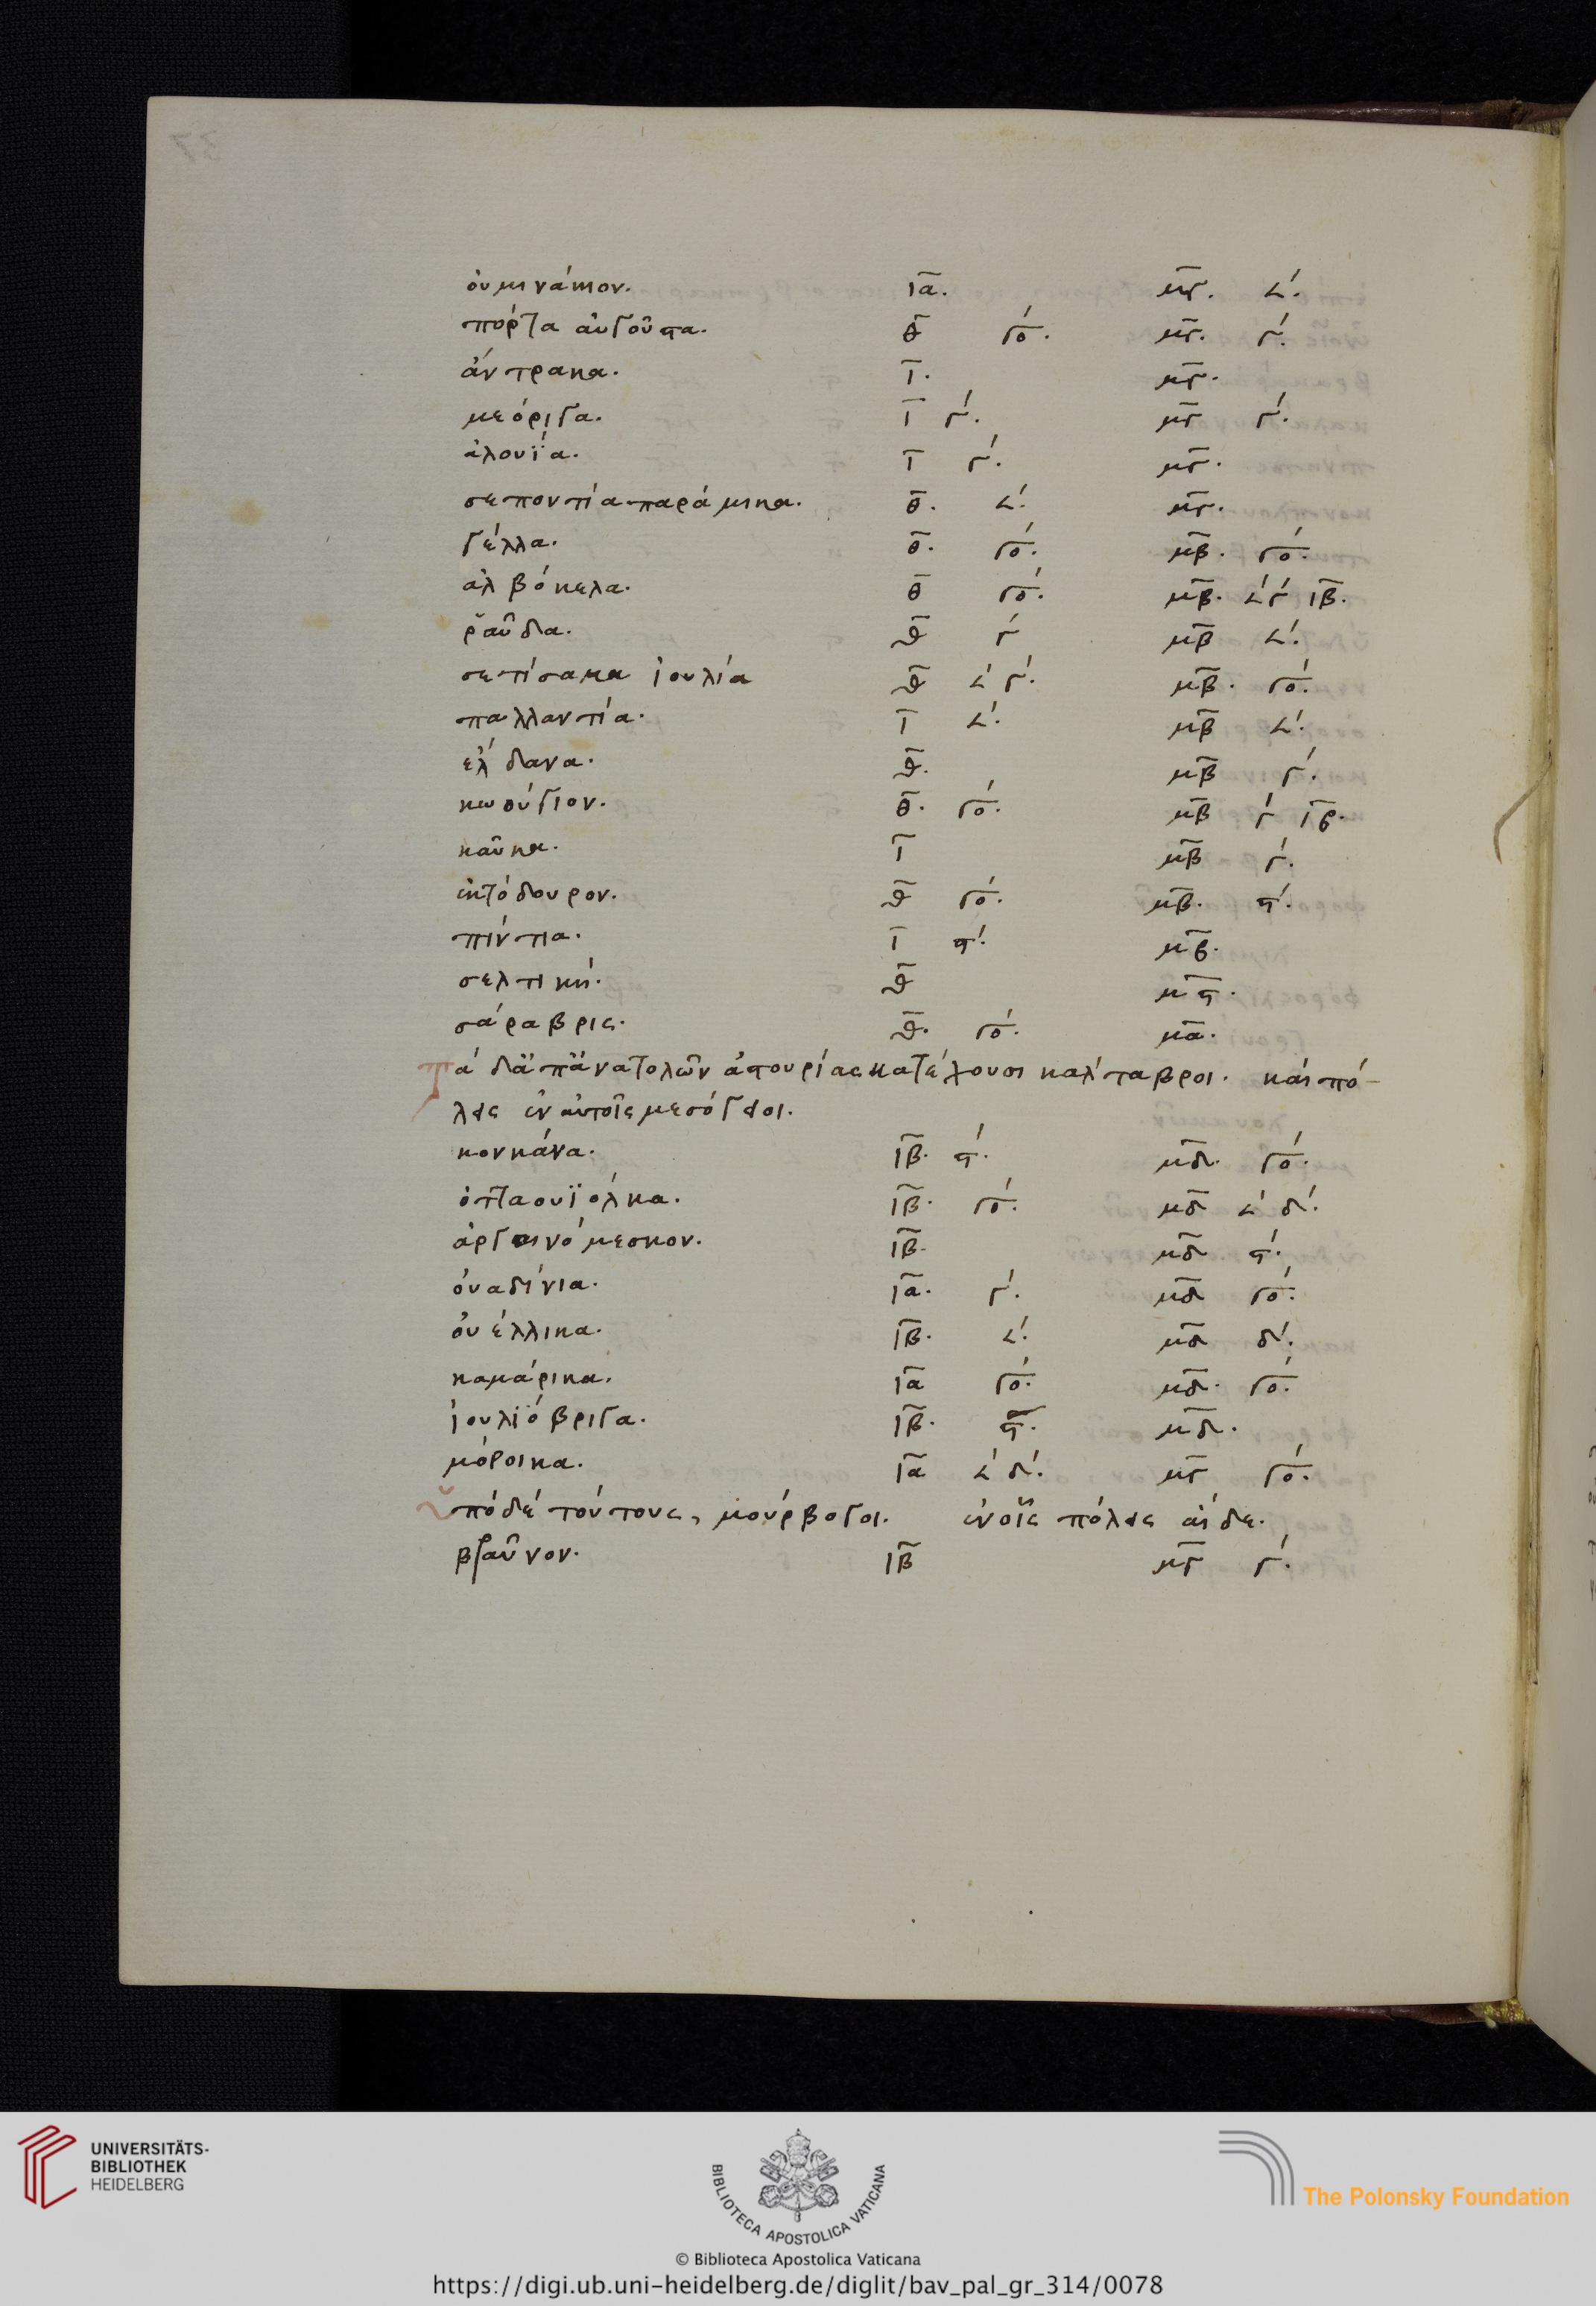 οὐιμινάτιον. ια. μγ. 𐅵.
πόρτα αὐγοῦστα. θ γο. μγ. γ.
ἄντρακα. ι. μγ.
μεόριγα. ι γ. μγ γ.
ἀλουΐα. ι γ. μγ.
σεποντία παράμικα. θ. 𐅵. μγ.
γέλλα. θ. γο. μβ. γο.
ἀλβόκελα. θ γο. μβ. 𐅵γ ιβ.
ῥαῦδα. θ γ μβ 𐅵.
σετίσακα ἰουλία θ 𐅵 γ. μβ. γο.
παλλαντία. ι 𐅵. μβ 𐅵.
ἔλδανα. θ. μβ γ.
κωούγιον. θ. γο. μβ γ ιβ.
καῦκα. ι μβ γ.
ὀκτόδουρον. θ γο. μβ. ϛ.
πιντία. ι ϛ. μβ.
σελτική. θ μϛ.
σάραβρις. θ. γο. μα.
Τὰ δὲ ἀπἀνατολῶν ἀστουρίας κατέχουσι κάνταβροι. καὶ πό-
λεις ἐν αὐτοῖς μεσόγειοι.
κονκάνα. ιβ. ϛ. μδ. γο.
ὀτταουϊόλκα. ιβ. γο. μδ 𐅵 δ.
ἀργαινόμεσκον. ιβ. μδ ϛ.
ὀυαδίνια. ια. γ. μδ γο.
ὀυέλλικα. ιβ. 𐅵. μδ δ.
καμάρικα. ια γο. μδ. γο.
ἰουλιόβριγα. ιβ. ϛ. μδ.
μόροικα. ια 𐅵 δ. μγ γο.
Ὑπὸ δὲ τούτους, μούρβογοι. ἐν οἷς πόλεις αἵδε.
βραῦνον. ιβ μγ γ.
UNIVERSITÄTS-
BIBLIOTHEK
HEIDELBERG
BIBLIOTECA APOSTOLICA VATICANA
The Polonsky Foundation
© Biblioteca Apostolica Vaticana
https://digi.ub.uni-heidelberg.de/diglit/bav_pal_gr_314/0078